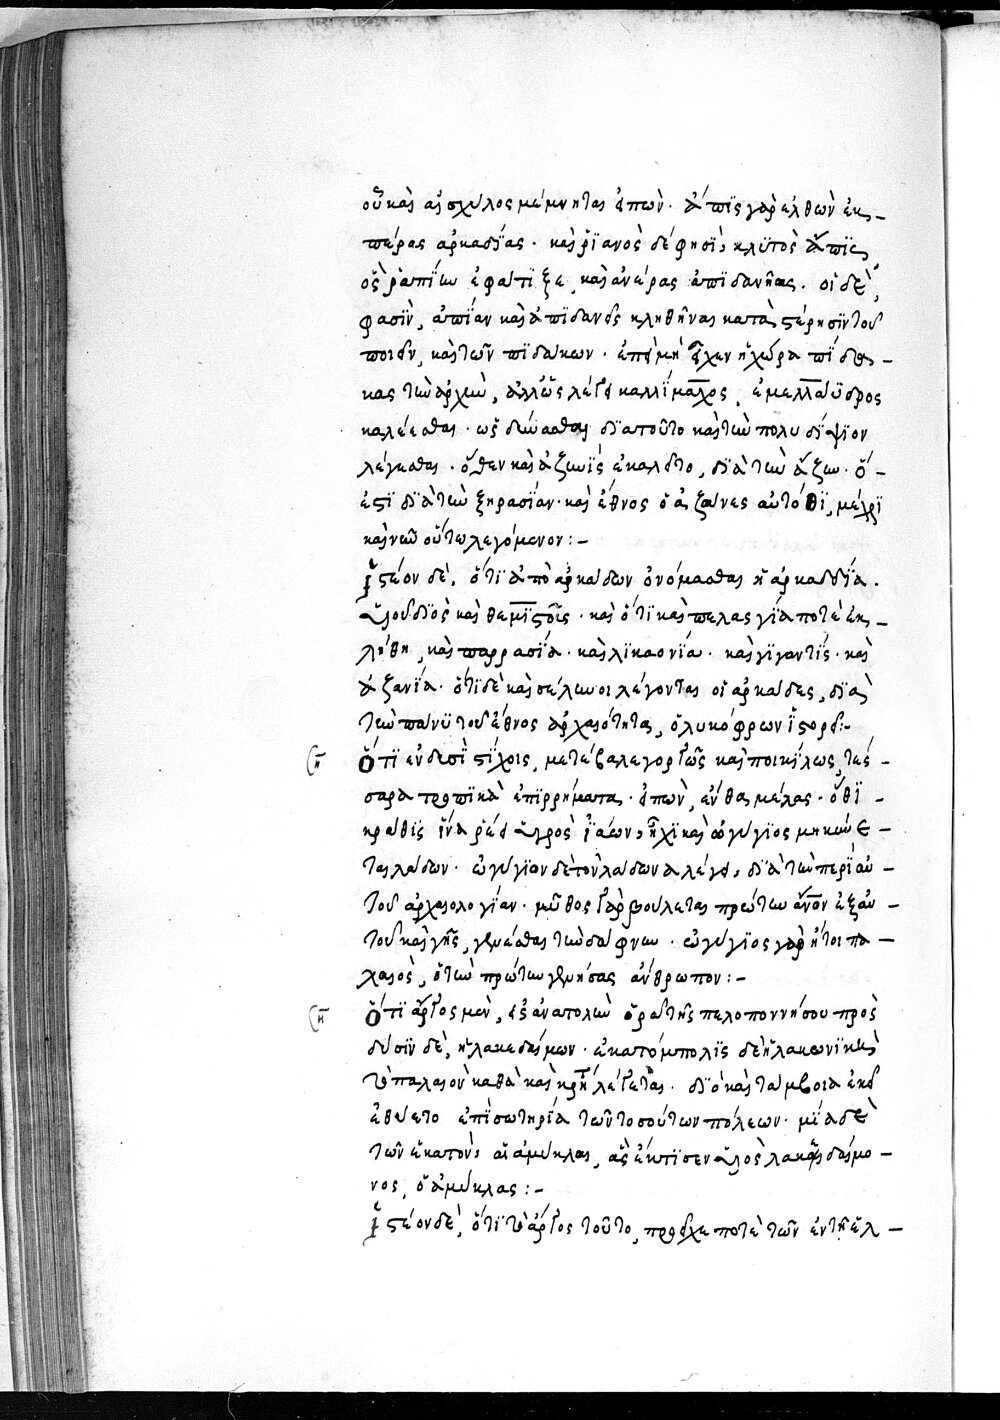 οὗ καὶ αἰσχύλος μέμνηται εἰπὼν· ἆπις γὰρ ἐλθὼν ἐκ –
πέρας ἀρκαδίας· καὶ ῥιανὸς δέ φησι, κλυτὸς ἆπις
ὃς ῥ' ἀπίην ἐφάτιξε, καὶ ἀνέρας ἀπιδανῆας. οἱ δὲ,
φασὶν, ἀπίαν καὶ ἀπιδανεῖς κληθῆναι κατὰ στέρησιν τοῦ
πιεῖν, καὶ τῶν πιδάκων· ἐπεὶ μὴ εἶχεν ἡ χώρα πίδα –
κας τὴν ἀρχὴν, ἀλλ' ὥς λέγει καλλίμαχος, ἔμελλ' ἄνυδρος
καλέεσθαι· ὡς δύνασθαι διὰ τοῦτο καὶ τὴν πολυδίψιον
λέγεσθαι· ὅθεν καὶ ἀζηνὶς ἐκαλεῖτο, διὰ τὴν ἄζην· ὅ –
ἐστι διὰ τὴν ξηρασίαν· καὶ ἔθνος ὁ ἀζᾶνες αὐτόθι, μέχρι
καὶ νῦν οὕτω λεγόμενον :–
Ἰστέον δὲ, ὅτι ἀπὸ ἀρκάδων ὀνόμασθαι ἡ ἀρκαδία.
υἱοῦ διὸς καὶ θεμιστοῦς· καὶ ὅτι καὶ πελασγία ποτὲ ἐκ –
λήθη, καὶ παρρασία· καὶ λικαονία· καὶ γιγαντίς· καὶ
ἀζανία· ὅτι δὲ καὶ σέληνοι λέγονται οἱ ἀρκάδες, διὰ
τὴν πάνυ τοῦ ἔθνος ἀρχαιότητα, ὁ λυκόφρων ἱστορεῖ :–
Ὅτι ἐν δεσὶ στίχοις, μεταβαλεγοργῶς καὶ ποικίλως, τέσ –
σαρα τοπικὰ ἐπιρρήματα· εἰπὼν, ἔνθα μέλας· ὅθι –
κράθις ἵνα ῥέει ὑγρὸς ἰάων, ἧχι καὶ ὠγύγιος μηκύνε –
ται λάδων· ὠγύγιον δὲ τὸν λάδωνα λέγει, διὰ τὴν περὶ αὐ –
τοῦ ἀρχαιολογίαν· μῦθος γὰρ βούλεται πρώτην ἄνον ἐξ αὐ –
τοῦ καὶ γῆς, γενέσθαι τὴν δάφνην· ὠγύγιος γὰρ ἤτοι πα –
λαιὸς, ὁ τὴν πρώτην γεννήσας ἄνθρωπον :–
Ὅτι ἄργος μὲν, ἐξ ἀνατολῶν ὁρᾶ τῆς πελοποννήσου πρὸς
δύσιν δὲ, ἡ λακεδαίμων· ἑκατόμπολις δὲ ἡ λακωνικὴ
τὸ παλαιὸν καθὰ καὶ κρήτη λέγεται. διὸ καὶ ταύροια ἐκεῖ
ἐθύετο ἐπὶ σωτηρία τῶν τοσούτων πόλεων· μία δὲ
τῶν ἑκατὸν, αἱ ἀμύκλαι, ἃς ἔκτισεν υἱὸς λακεδαίμο –
νος, ὁ ἀμύκλας :–
Ἰστέον δὲ, ὅτι τὸ ἄργος τοῦτο, προεῖχε ποτὲ τῶν ἐν τῆ ἑλ –